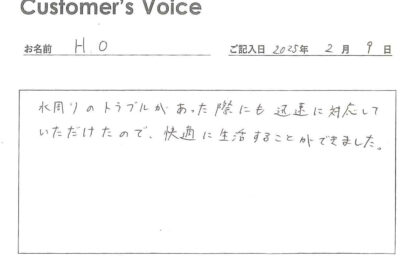 Customer's Voice
お名前 H.O ご記入日 2025年 2月 9日
水周りのトラブルがあった際にも迅速に対応して
いただけたので、快適に生活することができました。